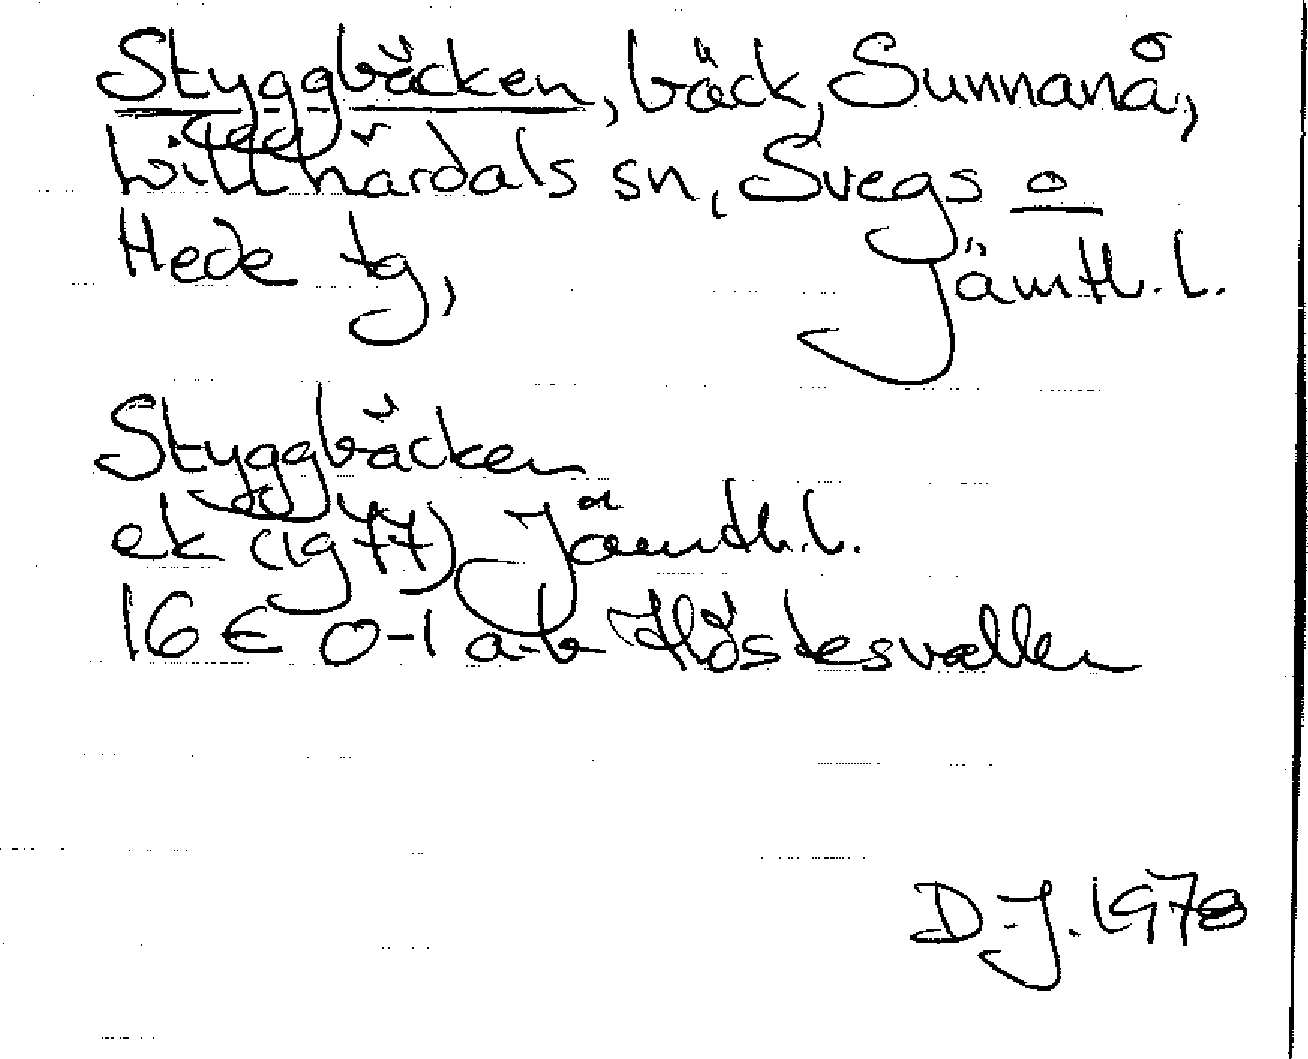 Styggbäcken, bäck, Sunnanå,
Lillhärdals sn, Svegs o
Hede tg, Jämtl. l.
Styggbäcken
ek (1977) Jämtl. l.
16 E 0-1 a-b Höstesvallen
D.J. 1978